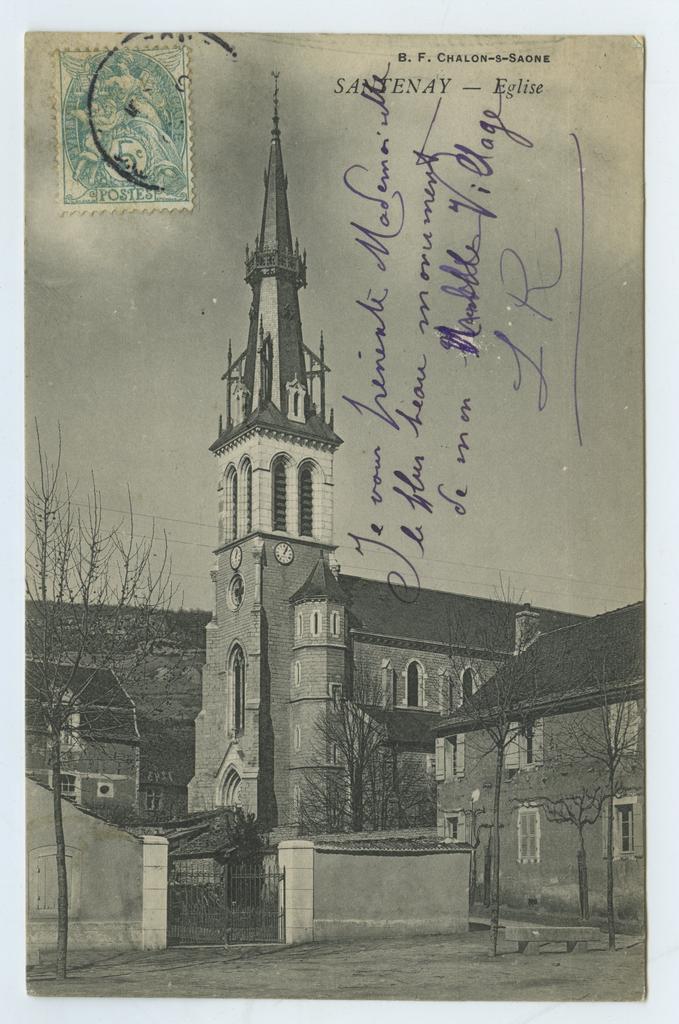 B. F. CHALON-S-SAONE
SANTENAY — Eglise
5c
POSTES
Je vous présente Mademoiselle
le plus beau monument
de mon Village
L R